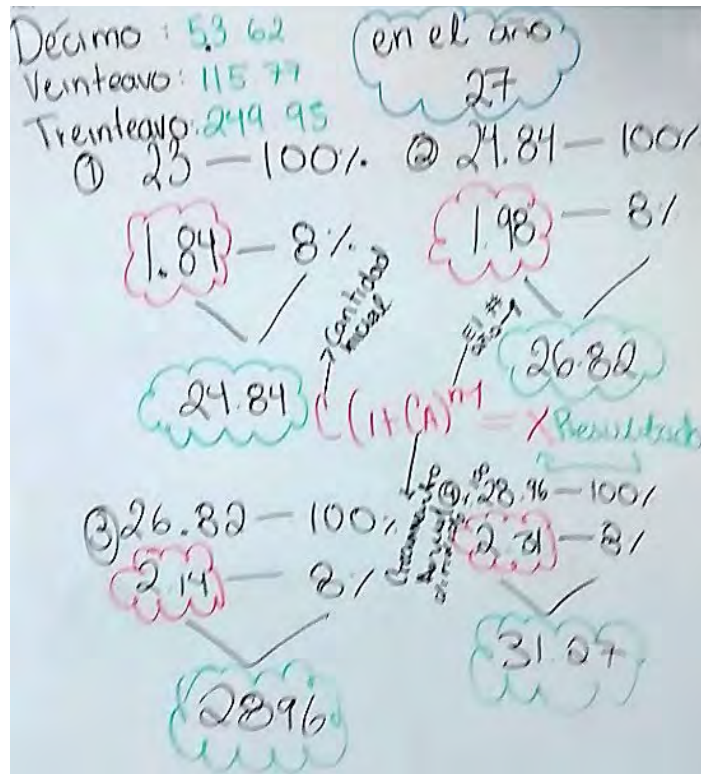 Décimo: 53 62
Veinteavo: 115 77
Treinteavo: 249 95
en el año
27
① 23 — 100%
1.84 — 8%
24.84
② 24.84 — 100%
1.98 — 8%
26.82
Cantidad
C(1+CA)ⁿ⁻¹ = X Resultado
③ 26.82 — 100%
2.14 — 8%
2896
④ 28.96 — 100%
2.31 — 8%
31.27